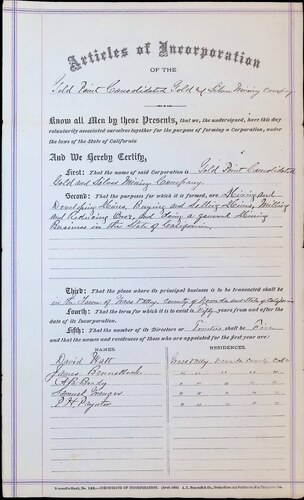 Articles of Incorporation
OF THE
Gold Point Consolidated Gold and Silver Mining Company
Know all Men by these Presents, that we, the undersigned, have this day
voluntarily associated ourselves together for the purpose of forming a Corporation, under
the laws of the State of California
And We Hereby Certify,
First: That the name of said Corporation is Gold Point Consolidated
Gold and Silver Mining Company.
Second: That the purposes for which it is formed, are Mining and
Developing Mines, Buying and Selling Mines, Milling
and Reducing Ores, and doing a general Mining
Business in the State of California.
Third: That the place where its principal business is to be transacted shall be
in the Town of Grass Valley, County of Nevada and State of California
Fourth: That the term for which it is to exist is Fifty years from and after the
date of its Incorporation.
Fifth: That the number of its Directors or Trustees shall be Five
and that the names and residences of those who are appointed for the first year are:
NAMES. RESIDENCES.
David Watt Grass Valley Nevada County Cal.
James Bennallack " " " "
A. B. Brady " " " "
Samuel Granger " " " "
P. H. Paynter " " " "
CERTIFICATE OF INCORPORATION.